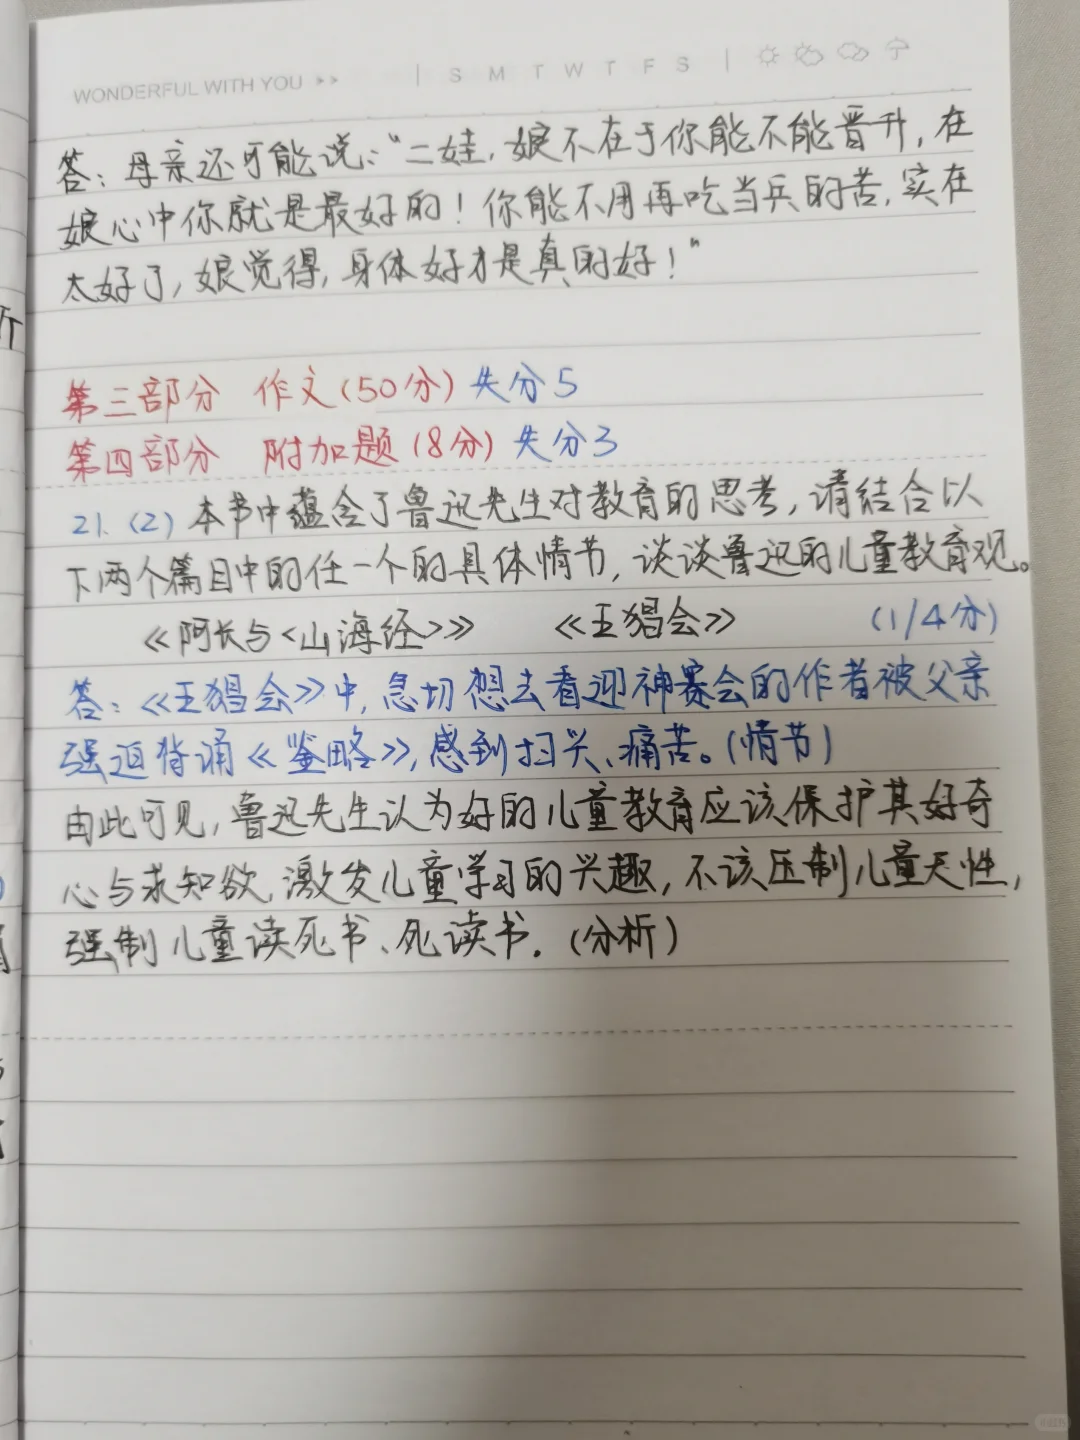 WONDERFUL WITH YOU >> | S M T W T F S |
答：母亲还可能说：“二娃，娘不在于你能不能晋升，在
娘心中你就是最好的！你能不用再吃当兵的苦，实在
太好了，娘觉得，身体好才是真的好！”
第三部分 作文(50分) 失分5
第四部分 附加题(8分) 失分3
21.(2)本书中蕴含了鲁迅先生对教育的思考，请结合以
下两个篇目中的任一个的具体情节，谈谈鲁迅的儿童教育观。
《阿长与<山海经>》 《五猖会》 (1/4分)
答：《五猖会》中，急切想去看迎神赛会的作者被父亲
强迫背诵《鉴略》，感到扫兴、痛苦。(情节)
由此可见，鲁迅先生认为好的儿童教育应该保护其好奇
心与求知欲，激发儿童学习的兴趣，不该压制儿童天性，
强制儿童读死书、死读书。(分析)